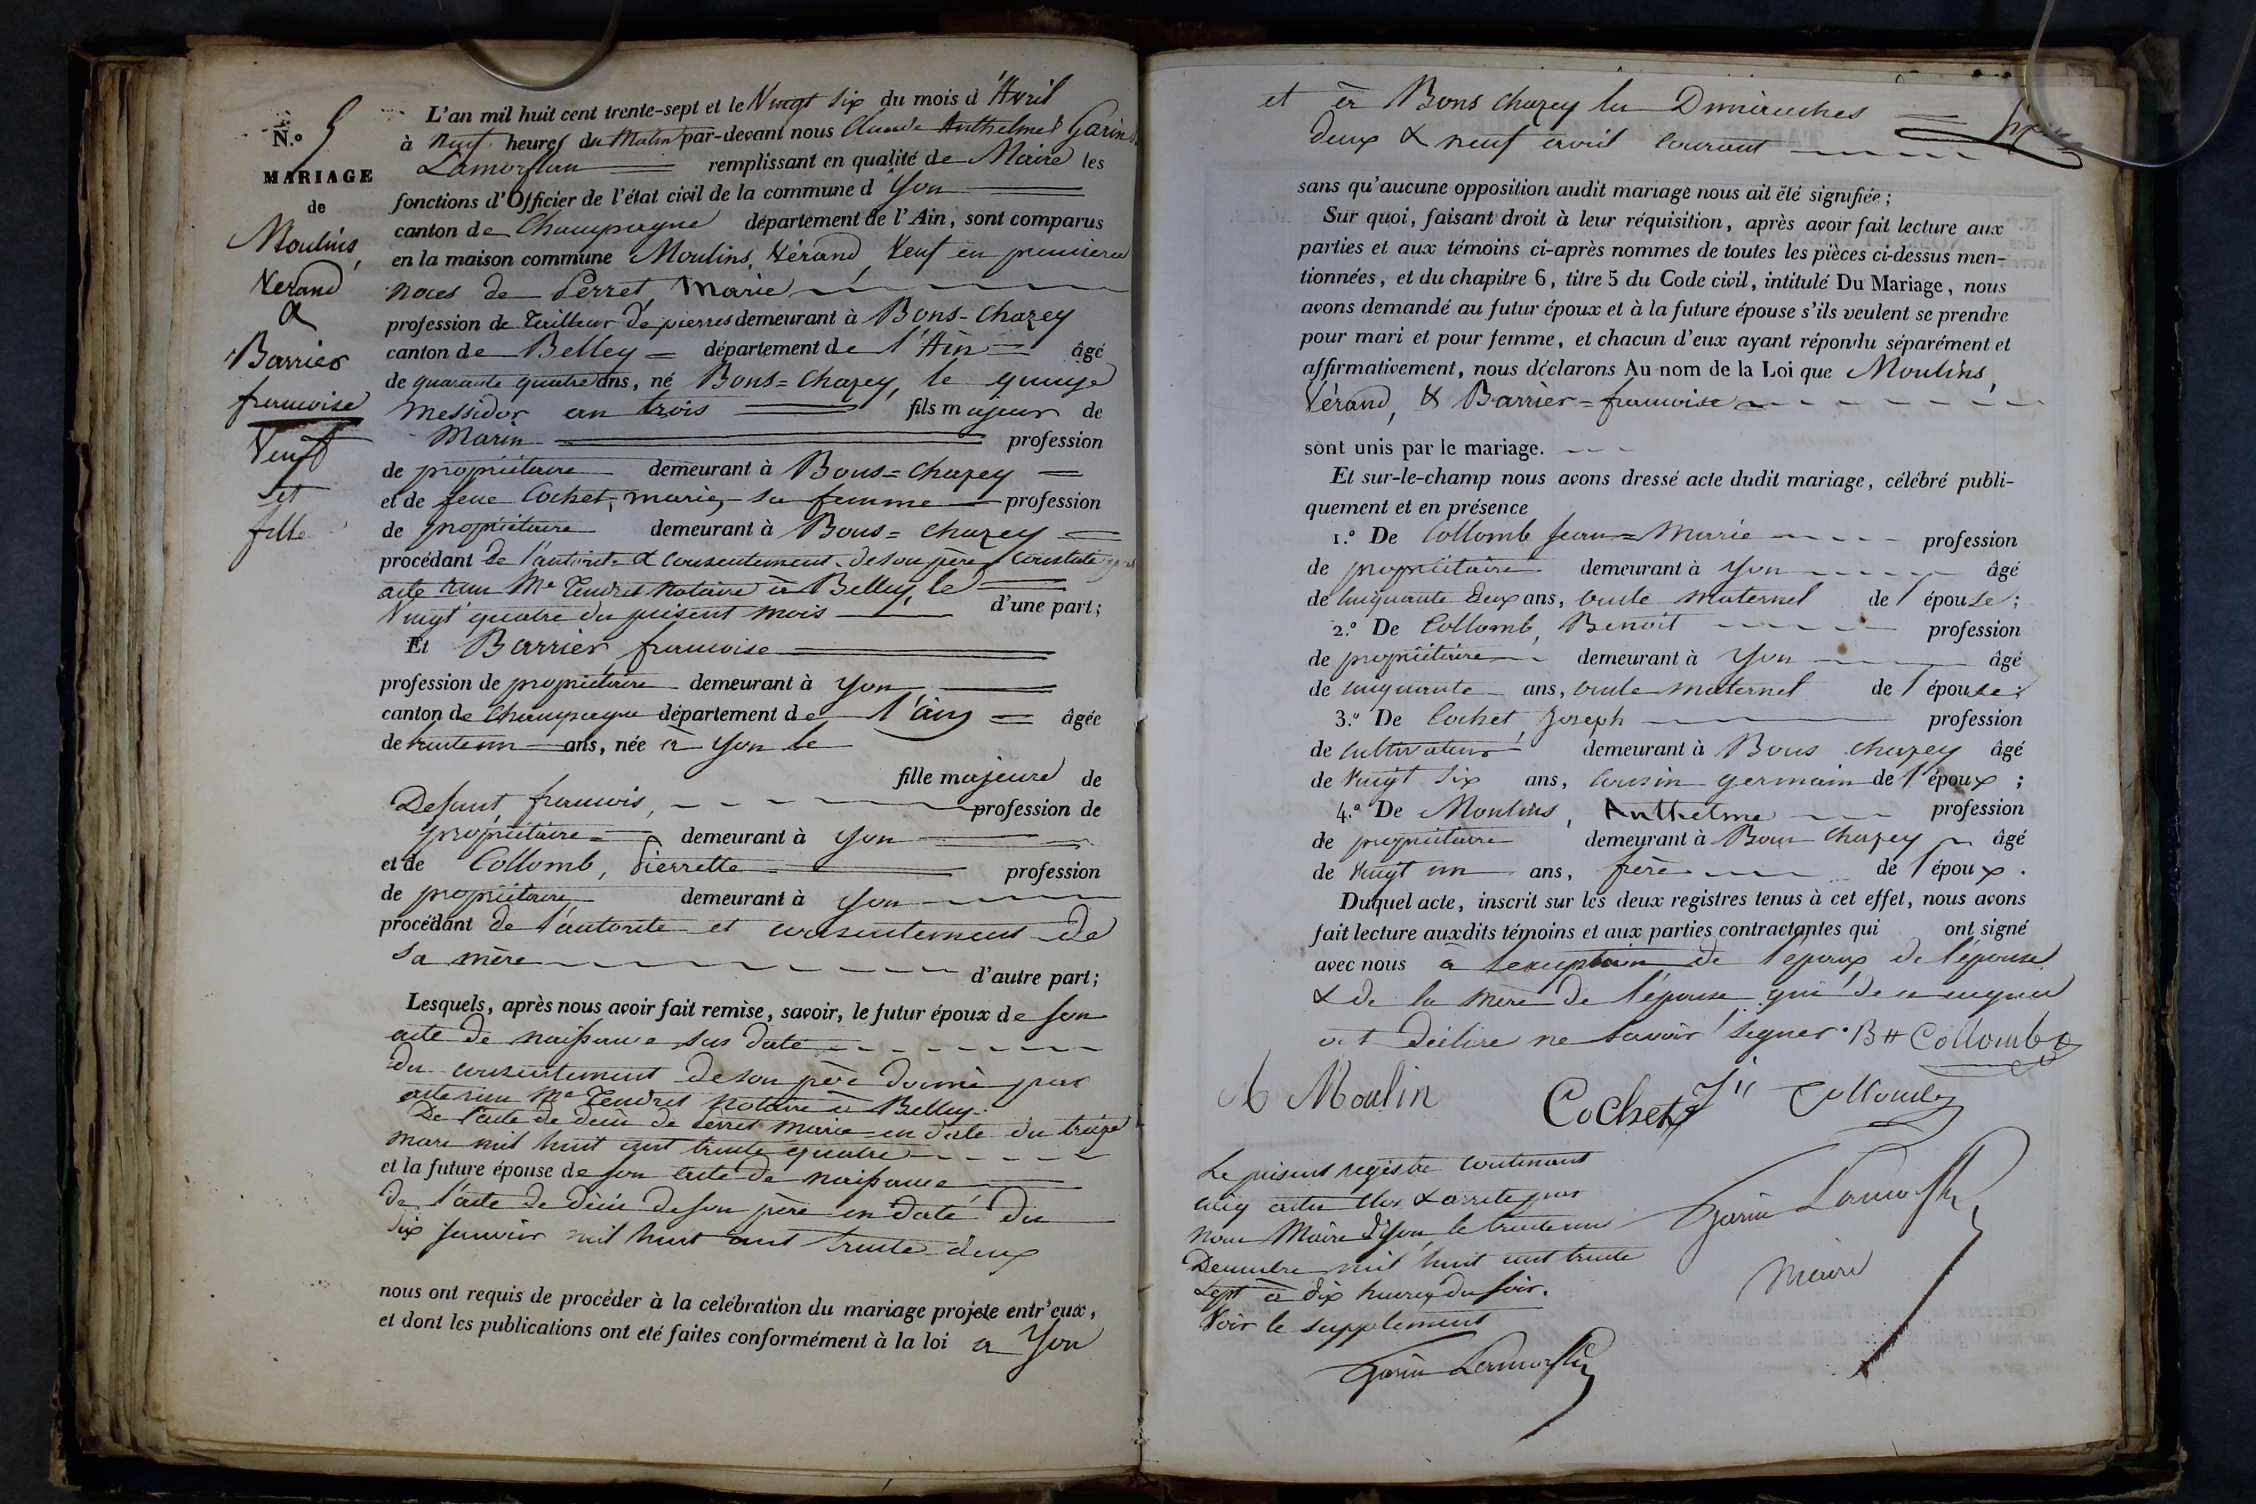 N.° 5
MARIAGE
de
Moulins,
Vérand
&
Barrier
francoise
Veuf
et
fille
L'an mil huit cent trente-sept et le Vingt six du mois d'Avril
à Neuf heures du Matin par-devant nous Claude Anthelme Garin
Lamorflan remplissant en qualité de Maire les
fonctions d'Officier de l'état civil de la commune d'Yon
canton de Champagne département de l'Ain, sont comparus
en la maison commune Moulins, Vérand, Veuf en premiere
noces de Perret Marie
profession de Tailleur de pierres demeurant à Bons-Chazey
canton de Belley = département de l'Ain = âgé
de quarante quatre ans, né Bons=Chazey, le quinze
Messidor an trois fils majeur de
Marin profession
de propriétaire demeurant à Bons=Chazey
et de feue Cochet, marie, sa femme profession
de propriétaire demeurant à Bons=Chazey
procédant de l'autorité & consentement de son père constaté
acte reçu Me Tendret Notaire à Belley, le
Vingt quatre du présent mois d'une part;
Et Barrier, francoise
profession de propriétaire demeurant à Yon
canton de Champagne département de l'ain = âgée
de trente un ans, née à Yon le
fille majeure de
Defunt francois, profession de
propriétaire demeurant à Yon
et de Collomb, Pierrette profession
de propriétaire demeurant à Yon
procédant de l'autorité et consentement de
sa mère d'autre part;
Lesquels, après nous avoir fait remise, savoir, le futur époux de son
acte de naissance sus daté
du consentement de son père donné par
acte reçu Me Tendret notaire à Belley.
De l'acte de décès de Perret Marie en date du treize
mars mil huit cent trente quatre
et la future épouse de son acte de naissance
de l'acte de décès de son père en date du
six janvier mil huit cent trente deux
nous ont requis de procéder à la celébration du mariage projeté entr'eux,
et dont les publications ont été faites conformément à la loi à Yon
et à Bons chazey les Dimanches
deux & neuf avril courant
sans qu'aucune opposition audit mariage nous ait été signifiée;
Sur quoi, faisant droit à leur réquisition, après avoir fait lecture aux
parties et aux témoins ci-après nommes de toutes les pièces ci-dessus men-
tionnées, et du chapitre 6, titre 5 du Code civil, intitulé Du Mariage, nous
avons demandé au futur époux et à la future épouse s'ils veulent se prendre
pour mari et pour femme, et chacun d'eux ayant répondu séparément et
affirmativement, nous déclarons Au nom de la Loi que Moulins,
Vérand, & Barrier=francoise
sont unis par le mariage.
Et sur-le-champ nous avons dressé acte dudit mariage, célébré publi-
quement et en présence
1.° De Collomb jean=Marie profession
de propriétaire demeurant à Yon âgé
de cinquante deux ans, oncle maternel de l'épouse;
2.° De Collomb, Benoit profession
de propriétaire demeurant à Yon âgé
de cinquante ans, oncle maternel de l'épouse;
3.° De Cochet, Joseph profession
de cultivateur demeurant à Bons chazey âgé
de vingt six ans, cousin germain de l'époux;
4.° De Moulins, Anthelme profession
de propriétaire demeurant à Bons Chazey âgé
de vingt un ans, frère de l'époux.
Duquel acte, inscrit sur les deux registres tenus à cet effet, nous avons
fait lecture auxdits témoins et aux parties contractantes qui ont signé
avec nous à l'exception de l'époux de l'épouse
& de la mère de l'épouse qui de ce requis
ont déclaré ne savoir signer. Bt Collomb
A Moulin Cochet Jh Collomb
Le présent registre contenant
cinq actes clos & arrêté par
nous Maire d'Yon, le trente un
Décembre mil huit cent trente
sept à dix heures du soir.
Voir le supplément
Garin Lamorflan
Maire
Garin Lamorflan